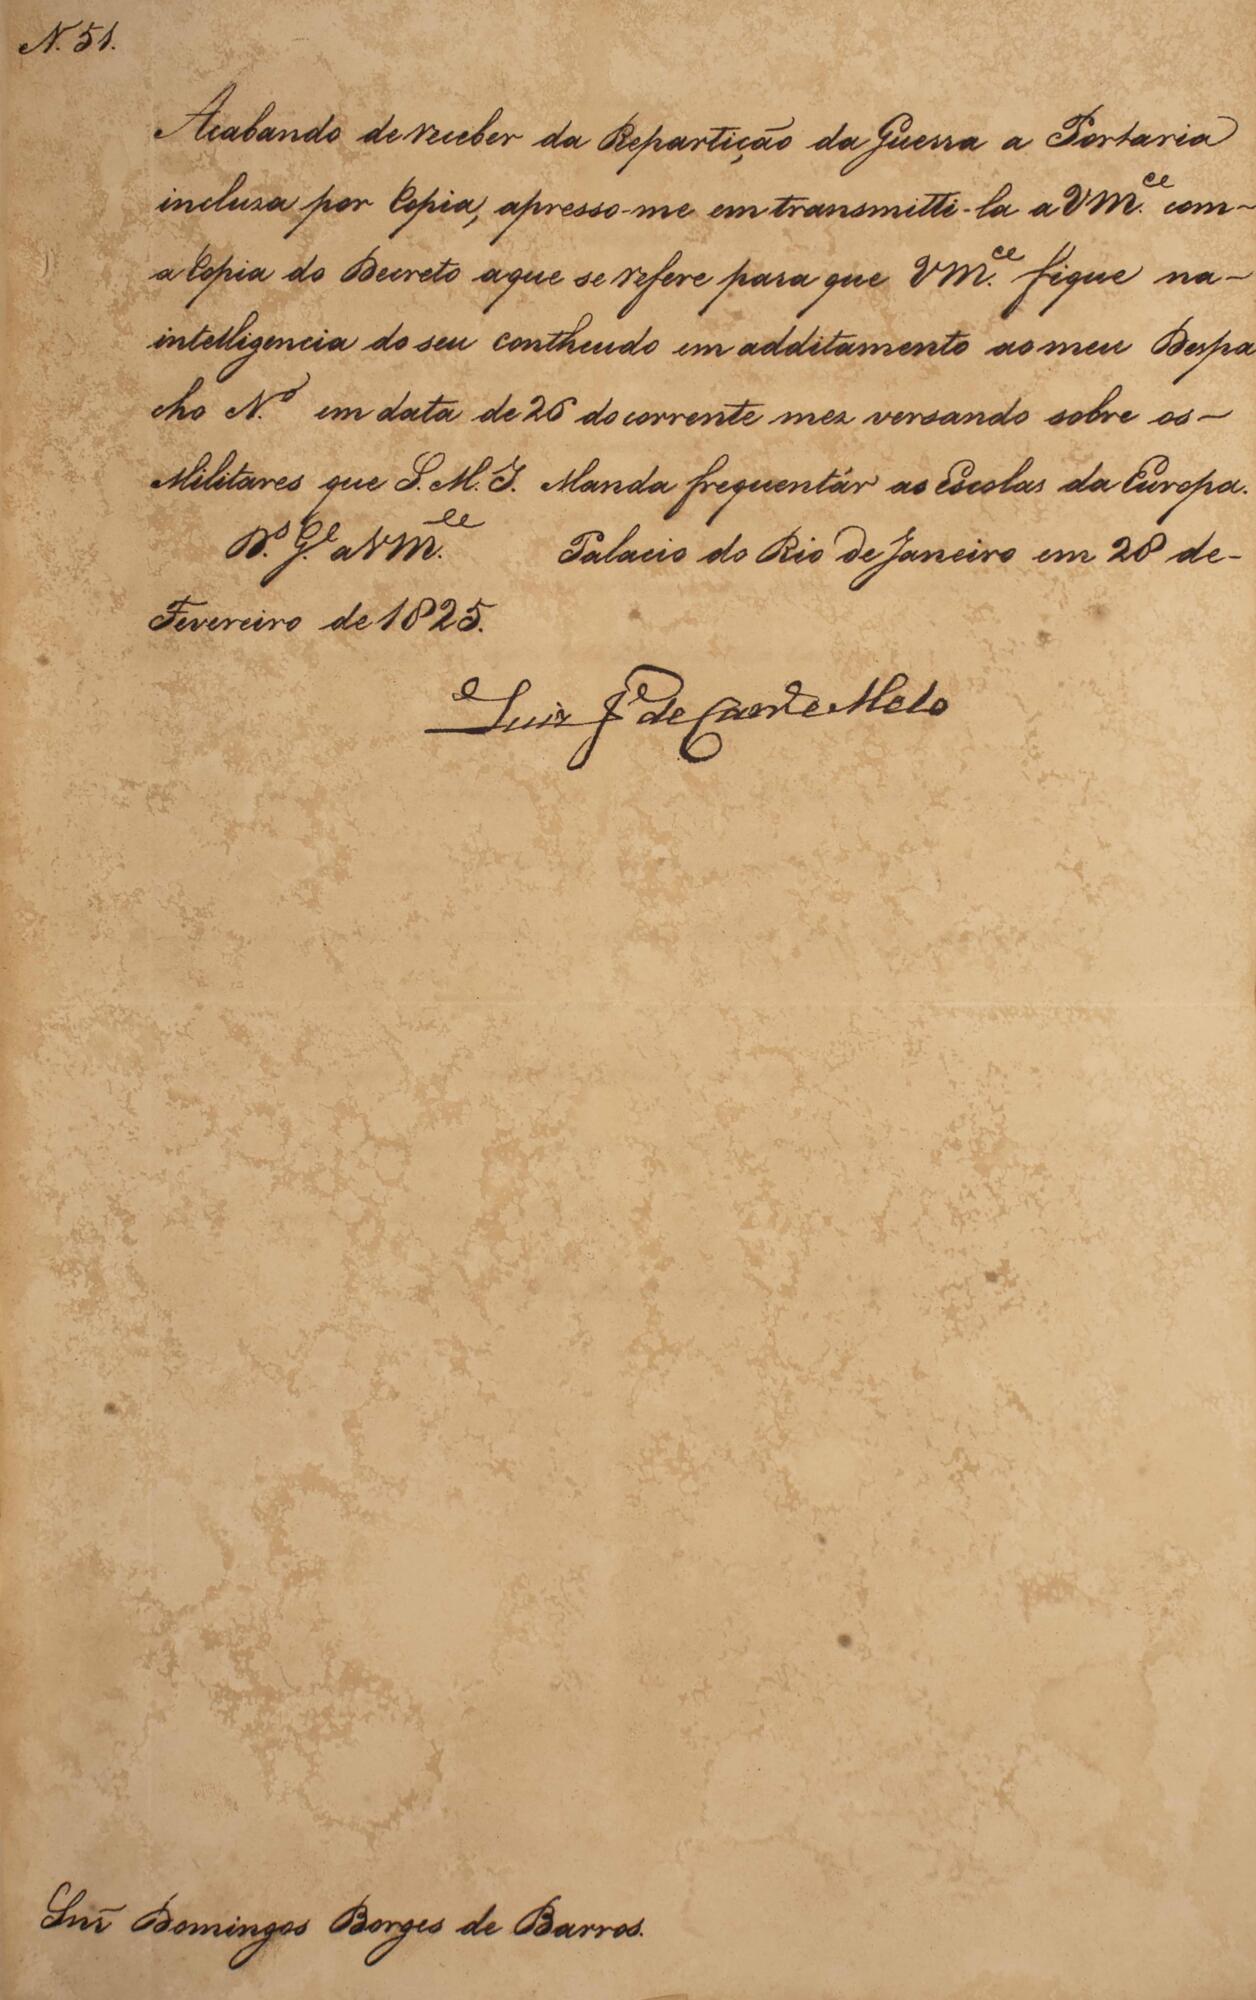 N. 51.
Acabando de receber da Repartição da Guerra a Portaria
incluza por Copia, apresso-me em transmitti-la a VM.ce com
a Copia do Decreto a que se refere para que VM.ce fique na
intelligencia do seu contheudo em additamento ao meu Despa
cho N.o em data de 26 do corrente mez versando sobre os
Militares que S.M.I. Manda frequentár as Escolas da Europa.
D.s G.e a VM.ce Palacio do Rio de Janeiro em 28 de
Fevereiro de 1825.
Luiz J.e de Carv.o e Mello
Snr Domingos Borges de Barros.